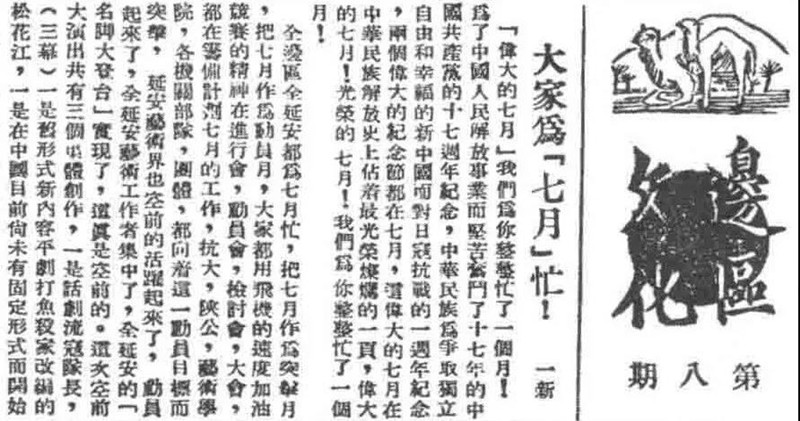 邊區
文化
第八期
大家爲「七月」忙!
一新
「偉大的七月」我們爲你整整忙了一個月!
爲了中國人民解放事業而堅苦奮鬥了十七年的中
國共產黨的十七週年紀念,中華民族爲爭取獨立
自由和幸福的新中國而對日寇抗戰的一週年紀念
,兩個偉大的紀念節都在七月,這偉大的七月在
中華民族解放史上佔着最光榮燦爛的一頁,偉大
的七月!光榮的七月!我們爲你整整忙了一個
月!
全邊區全延安都爲七月忙,把七月作爲突擊月
,把七月作爲動員月,大家都用飛機的速度加油
競賽的精神在進行會,動員會,檢討會,大會,
都在籌備計劃七月的工作,抗大,陝公,藝術學
院,各機關部隊,團體,都向着這一動員目標而
突擊,延安藝術界也空前的活躍起來了,動員
起來了,全延安藝術工作者集中了,全延安的「
名脚大登台」實現了,這眞是空前的。這次空前
大演出共有三個集體創作,一是話劇流寇隊長,
(三幕)一是舊形式新內容平劇打魚殺家改編的
松花江,一是在中國目前尚未有固定形式而開始